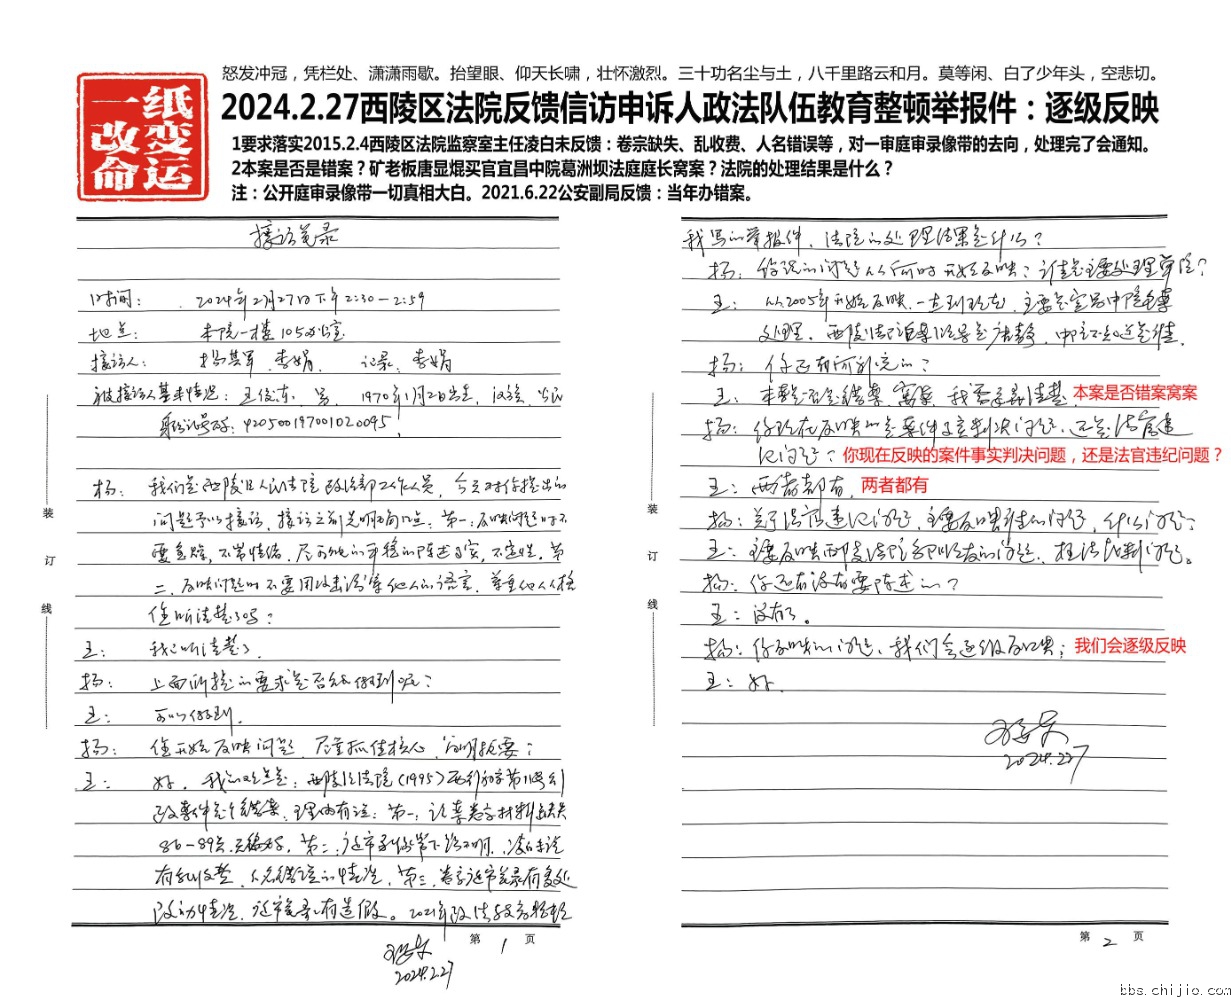 一纸
改变
命运
怒发冲冠，凭栏处、潇潇雨歇。抬望眼、仰天长啸，壮怀激烈。三十功名尘与土，八千里路云和月。莫等闲、白了少年头，空悲切。
2024.2.27西陵区法院反馈信访申诉人政法队伍教育整顿举报件：逐级反映
1要求落实2015.2.4西陵区法院监察室主任凌白未反馈：卷宗缺失、乱收费、人名错误等，对一审庭审录像带的去向，处理完了会通知。
2本案是否是错案？矿老板唐显焜买官宜昌中院葛洲坝法庭庭长窝案？法院的处理结果是什么？
注：公开庭审录像带一切真相大白。2021.6.22公安副局反馈：当年办错案。
接访笔录
时间： 2024年2月27日下午2:30-2:59
地点： 本院一楼105办公室
接访人： 杨其军 李娟 记录：李娟
被接访人基本情况：王俊东，男，1970年1月2日出生，汉族
身份证号码：420500197001020095
杨：我们是西陵区人民法院政治部工作人员，今天对你提出的
问题予以接访，接访之前先明确几点：第一：反映问题时不
要急躁，不带情绪，尽可能的平稳的陈述事实，不定性。第
二、反映问题时不要用攻击污辱他人的语言，尊重他人人格
你听清楚了吗？
王：我已听清楚了。
杨：上面所提的要求是否能做到呢？
王：可以做到。
杨：你开始反映问题，尽量抓住核心，简明扼要？
王：好，我的观点是：西陵区法院（1995）西刑初字第118号刑
事案件是个错案，理由有三：第一：该案卷宗材料缺失
86-89页，第二：庭审录像带下落不明，凌白未说
有乱收费，人名错误的情况，第三，卷宗庭审笔录有多处
改动情况，庭审笔录有造假。2021年政法教育整顿
2024.2.27
第 1 页
装
订
线
我写的举报件，法院的处理结果是什么？
杨：你说的问题从何时开始反映？谁是主要处理单位？
王：从2005年开始反映，一直到现在，主要是宜昌中院
处理，西陵法院
杨：你还有所补充的？
王：本案是否是错案、窝案，我要求弄清楚。
本案是否错案窝案
杨：你现在反映的是案件事实判决问题，还是法官违
纪问题？
你现在反映的案件事实判决问题，还是法官违纪问题？
王：两者都有。
两者都有
杨：关于法官违纪问题，主要反映谁的问题，什么问题？
王：主要反映西陵法院的问题，枉法裁判问题。
杨：你还有没有要陈述的？
王：没有了。
杨：你反映的问题，我们会逐级反映；
我们会逐级反映
王：好。
2024.2.27
第 2 页
装
订
线
bbs.chijio.com